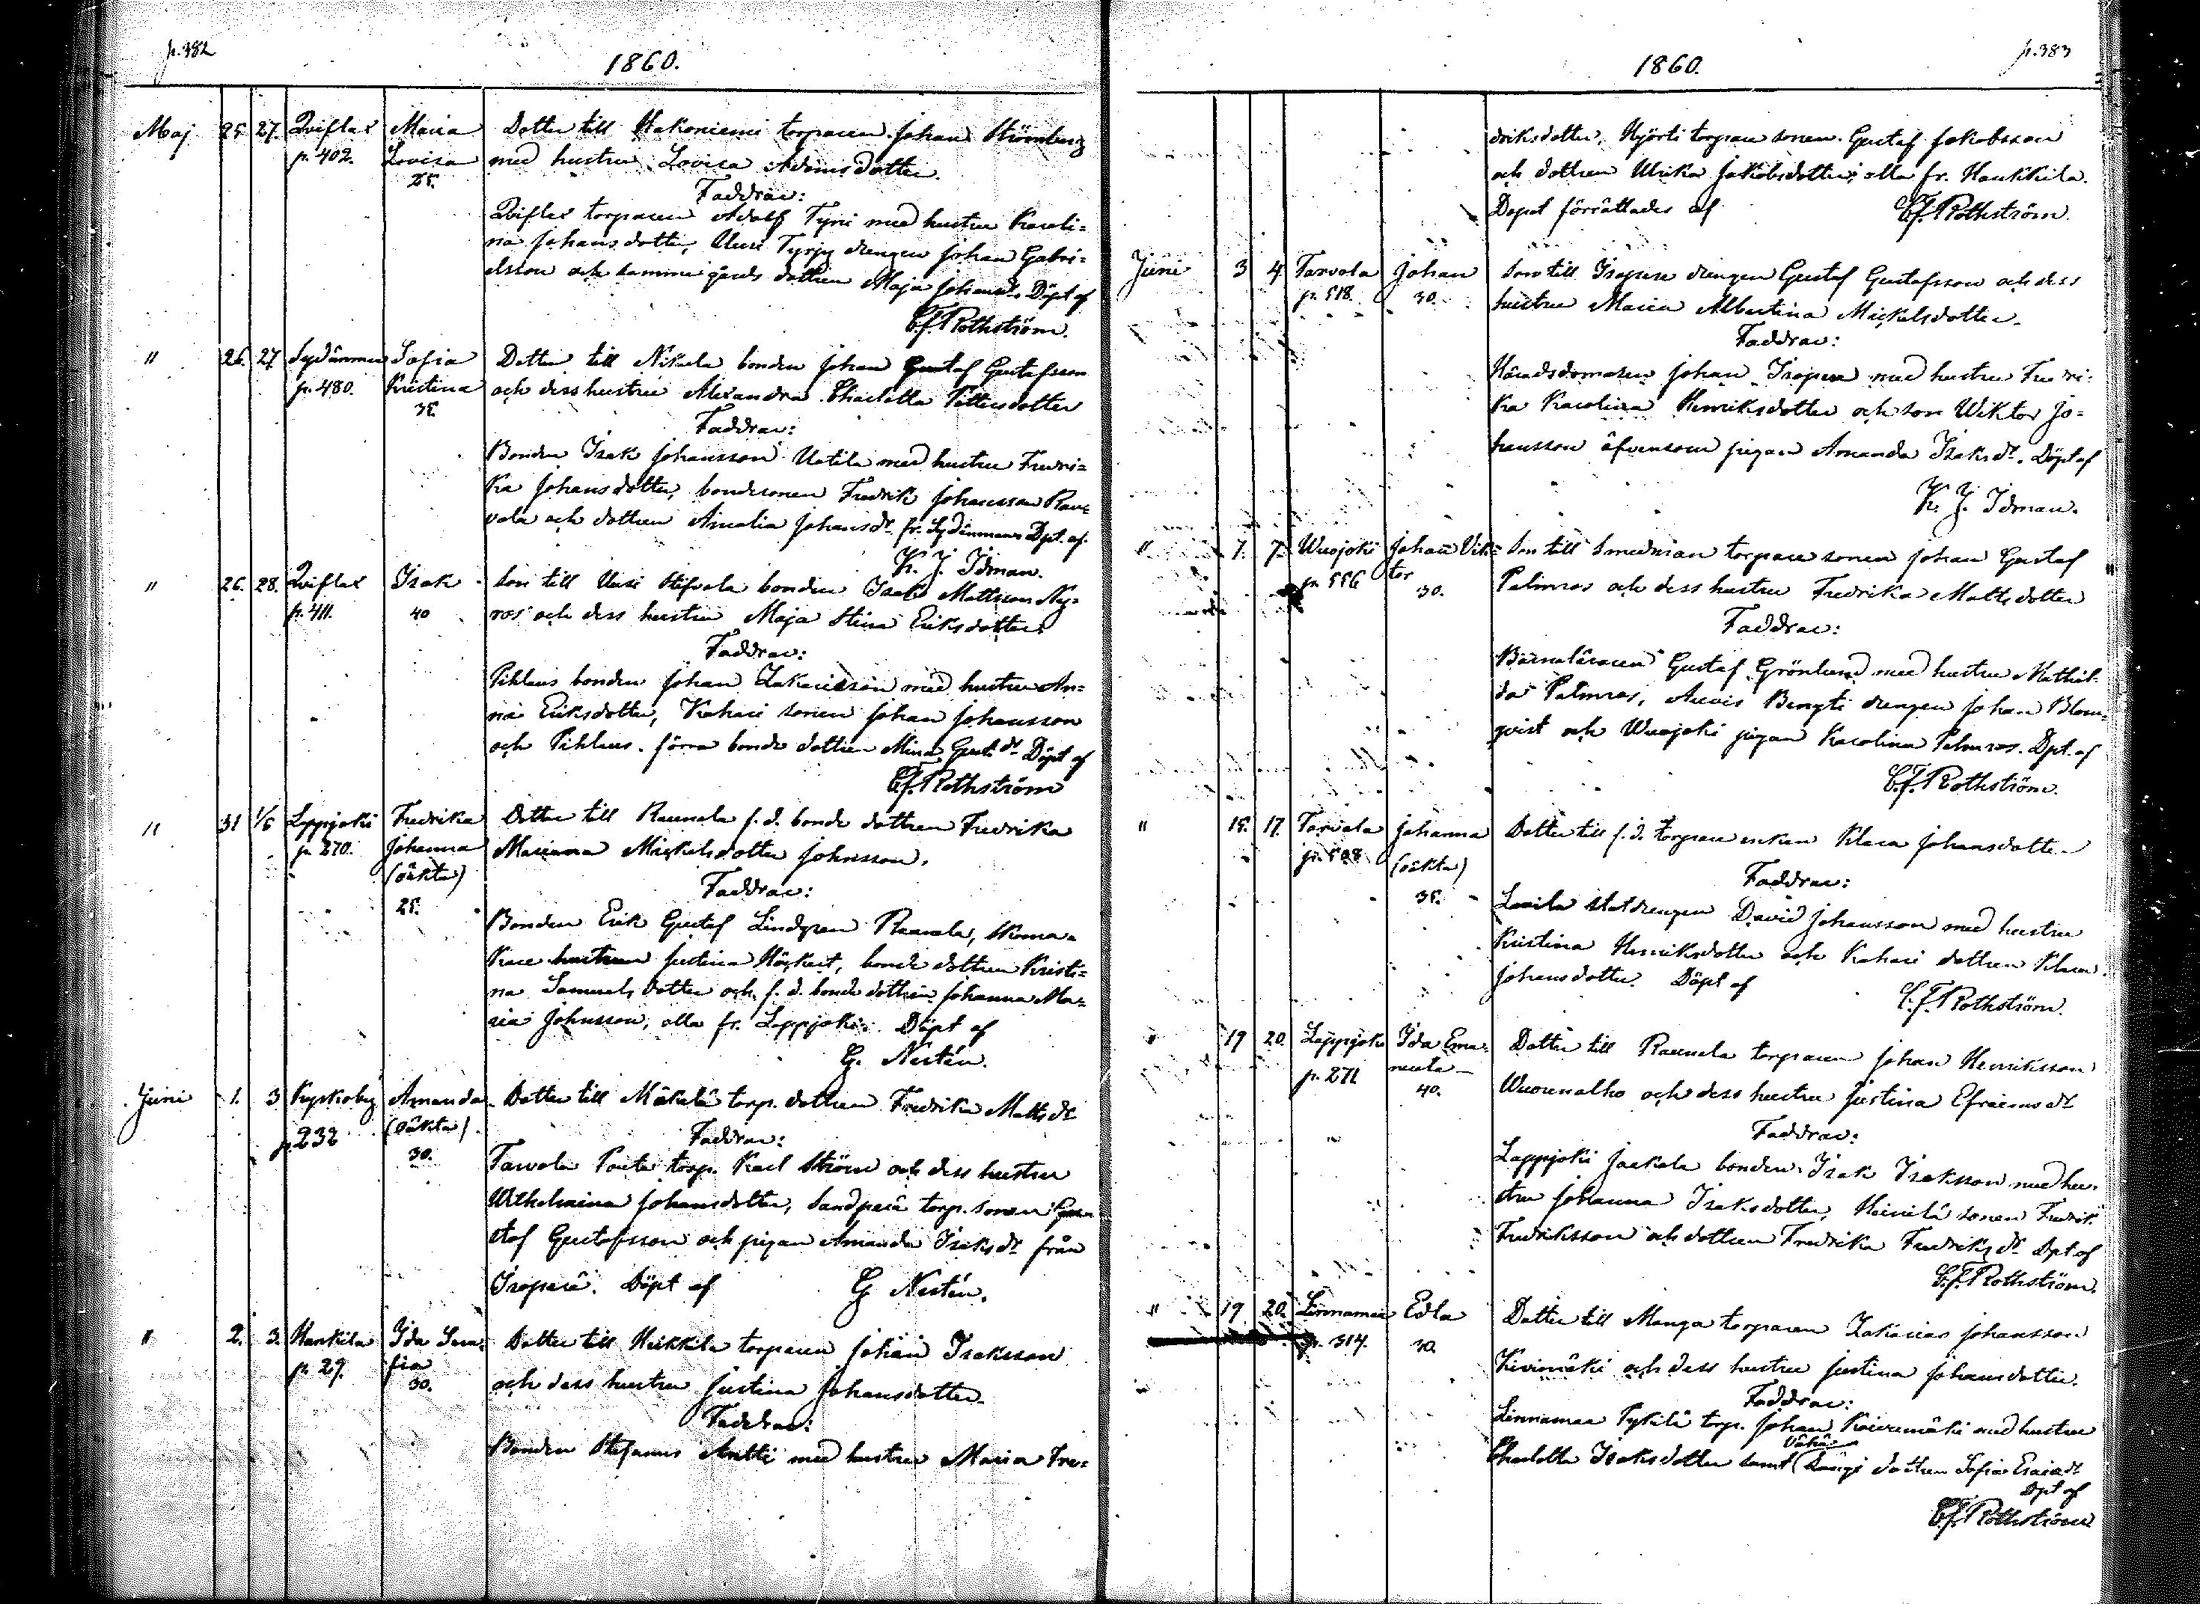 p. 382
1860.
Maj 25. 27. Qviflax Maria Dotter till Stakoniemi torparen Johan Strömberg
p. 402. Lovisa med hustru Lovisa Adamsdotter.
25.
Faddrar:
Qviflax torparen Adolf Tyni med hustru Karoli=
na Johansdotter, Uusi Tyrjy drengen Johan Gabri=
elsson och samma gårds dottren Maja Johansdr. Döpt af
C.f. Rothström.
" 26. 27 Sydänmaa Sofia Dotter till Nikula bonden Johan Gustaf Gustafsson
p. 480. Kristina och dess hustru Alexandra Charlotta Pettersdotter
35.
Faddrar:
Bonden Isak Johansson Uotila med hustru Fredri=
ka Johansdotter, bondesonen Fredrik Johansson Rau=
vola och dottren Amalia Johansdr. fr. Sydänmaa. Dpt. af
K. J. Idman.
" 26. 28. Qviflax Isak Son till Uusi Stifvola bonden Isak Mattsson Ny=
p. 411. 40 ros och dess hustru Maja Stina Eriksdotter.
Faddrar:
Pihlaus bonden Johan Zakariasson med hustru An=
na Eriksdotter, Kahari sonen Johan Johansson
och Pihlaus förra bonde dottren Mina Gust.dr. Döpt af
C.f. Rothström
" 31 1/6 Lappjoki Fredrika Dotter till Raunela f. d. bonde dottren Fredrika
p. 270. Johanna Mariana Mickelsdotter Johnsson.
(oäkta)
25.
Faddrar:
Bonden Erik Gustaf Lindgren Raunela, skoma=
kare hustrun Justina Höckert, bonde dottren Kristi=
na Samuelsdotter och f. d. bonde dottren Johanna Ma=
ria Johnsson, alla fr. Lappjoki. Döpt af
G. Nestén.
Juni 1. 3 Kyrkoby Amanda Dotter till Mäkelä torp. dottren Fredrika Mattsdr
p. 232 (oäkta)
30.
Faddrar:
Tarvola torp. Karl Ström och dess hustru
Wilhelmina Johansdotter, Sandperä torp. sonen Gu=
staf Gustafsson och pigan Amanda Isaksdr från
Isoperä. Döpt af G Nestén.
" 2. 3. Hankila Ida Sera= Dotter till Heikkilä torparen Johan Isaksson
p. 29. fia och dess hustru Justina Johansdotter.
30.
Faddrar:
Bonden Stefanus Antti med hustru Maria Fre=
p. 383
1860.
driksdotter, Hjörti torpare sonen Gustaf Jakobsson
och dottren Ulrika Jakobsdotter, alla fr. Hankkila.
Dopet förrättades af C.f. Rothström.
Juni 3 4 Tarvola Johan Son till Isopere drengen Gustaf Gustafsson och dess
p. 518. 30. hustru Maria Albertina Mickelsdotter.
Faddrar:
Häradsdomaren Johan Isopere med hustru Fredri=
ka Karolina Henriksdotter och son Wiktor Jo=
hansson äfvensom pigan Amanda Isaksdr. Döpt af
K. J. Idman.
" 7. 7. Wuojoki Johan Vik= Son till Smedman torpare sonen Johan Gustaf
p. 556 tor Palmros och dess hustru Fredrika Mattsdotter
30.
Faddrar:
Barnaläraren Gustaf Grönlund med hustru Mathil=
da Palmros, Auvis Bengti drengen Johan Blom=
qvist och Wuojoki pigan Karolina Palmros. Dpt. af
C.f. Rothström.
" 15. 17. Tarvola Johanna Dotter till f. d. torpare enkan Klara Johansdotter
p. 508 (oäkta)
35.
Faddrar:
Lavila statdrengen David Johansson med hustru
Kristina Henriksdotter och Kahari dottren Klara
Johansdotter. Döpt af C.f. Rothström.
" 19 20. Lappjoki Ida Ema= Dotter till Raunela torparen Johan Henriksson
p. 271 nuela Wuorenalho och dess hustru Justina Efraimsdr
40.
Faddrar:
Lappjoki Jaakola bonden Isak Isaksson med hu=
stru Johanna Isaksdotter, Heinilä sonen Fredrik
Fredriksson och dottren Fredrika Fredriksdr Dpt af
C.f. Rothström.
" 19 20. Linnamaa Edla Dotter till Manga torparen Zakarias Johansson
p. 314. 30. Kivimäki och dess hustru Justina Johansdotter.
Faddrar:
Linnamaa Pykilä torp. Johan Koivumäki med hustru
Vähä=
Charlotta Isaksdotter samt dottren Sofia Esaiædr
Dpt af
C.f. Rothström